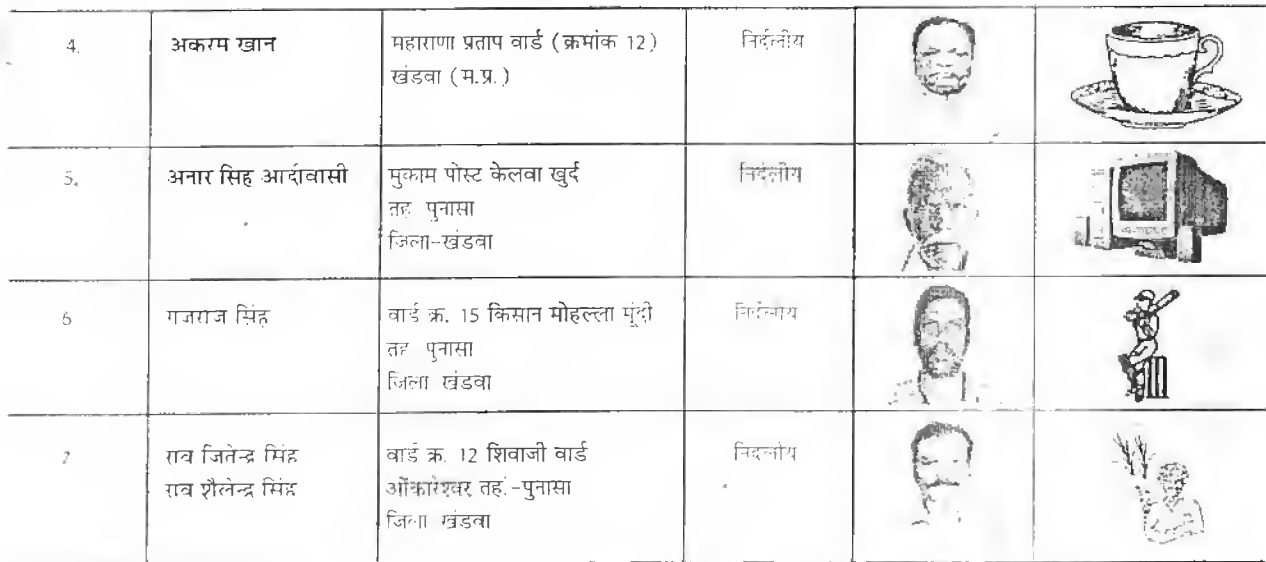 4.
अकरम खान
महाराणा प्रताप वार्ड (क्रमांक 12)
खंडवा (म.प्र.)
निर्दलीय
5.
अनार सिह आदीवासी
मुकाम पोस्ट केलवा खुर्द
तह पुनासा
जिला-खंडवा
निर्दलीय
6
गजराज सिंह
वार्ड क्र. 15 किसान मोहल्ला मूंदी
तह पुनासा
जिला खंडवा
निर्दलीय
7
राव जितेन्द्र सिंह
राव शैलेन्द्र सिंह
वार्ड क्र. 12 शिवाजी वार्ड
ओंकारेश्वर तह.-पुनासा
जिला खंडवा
निदलीय